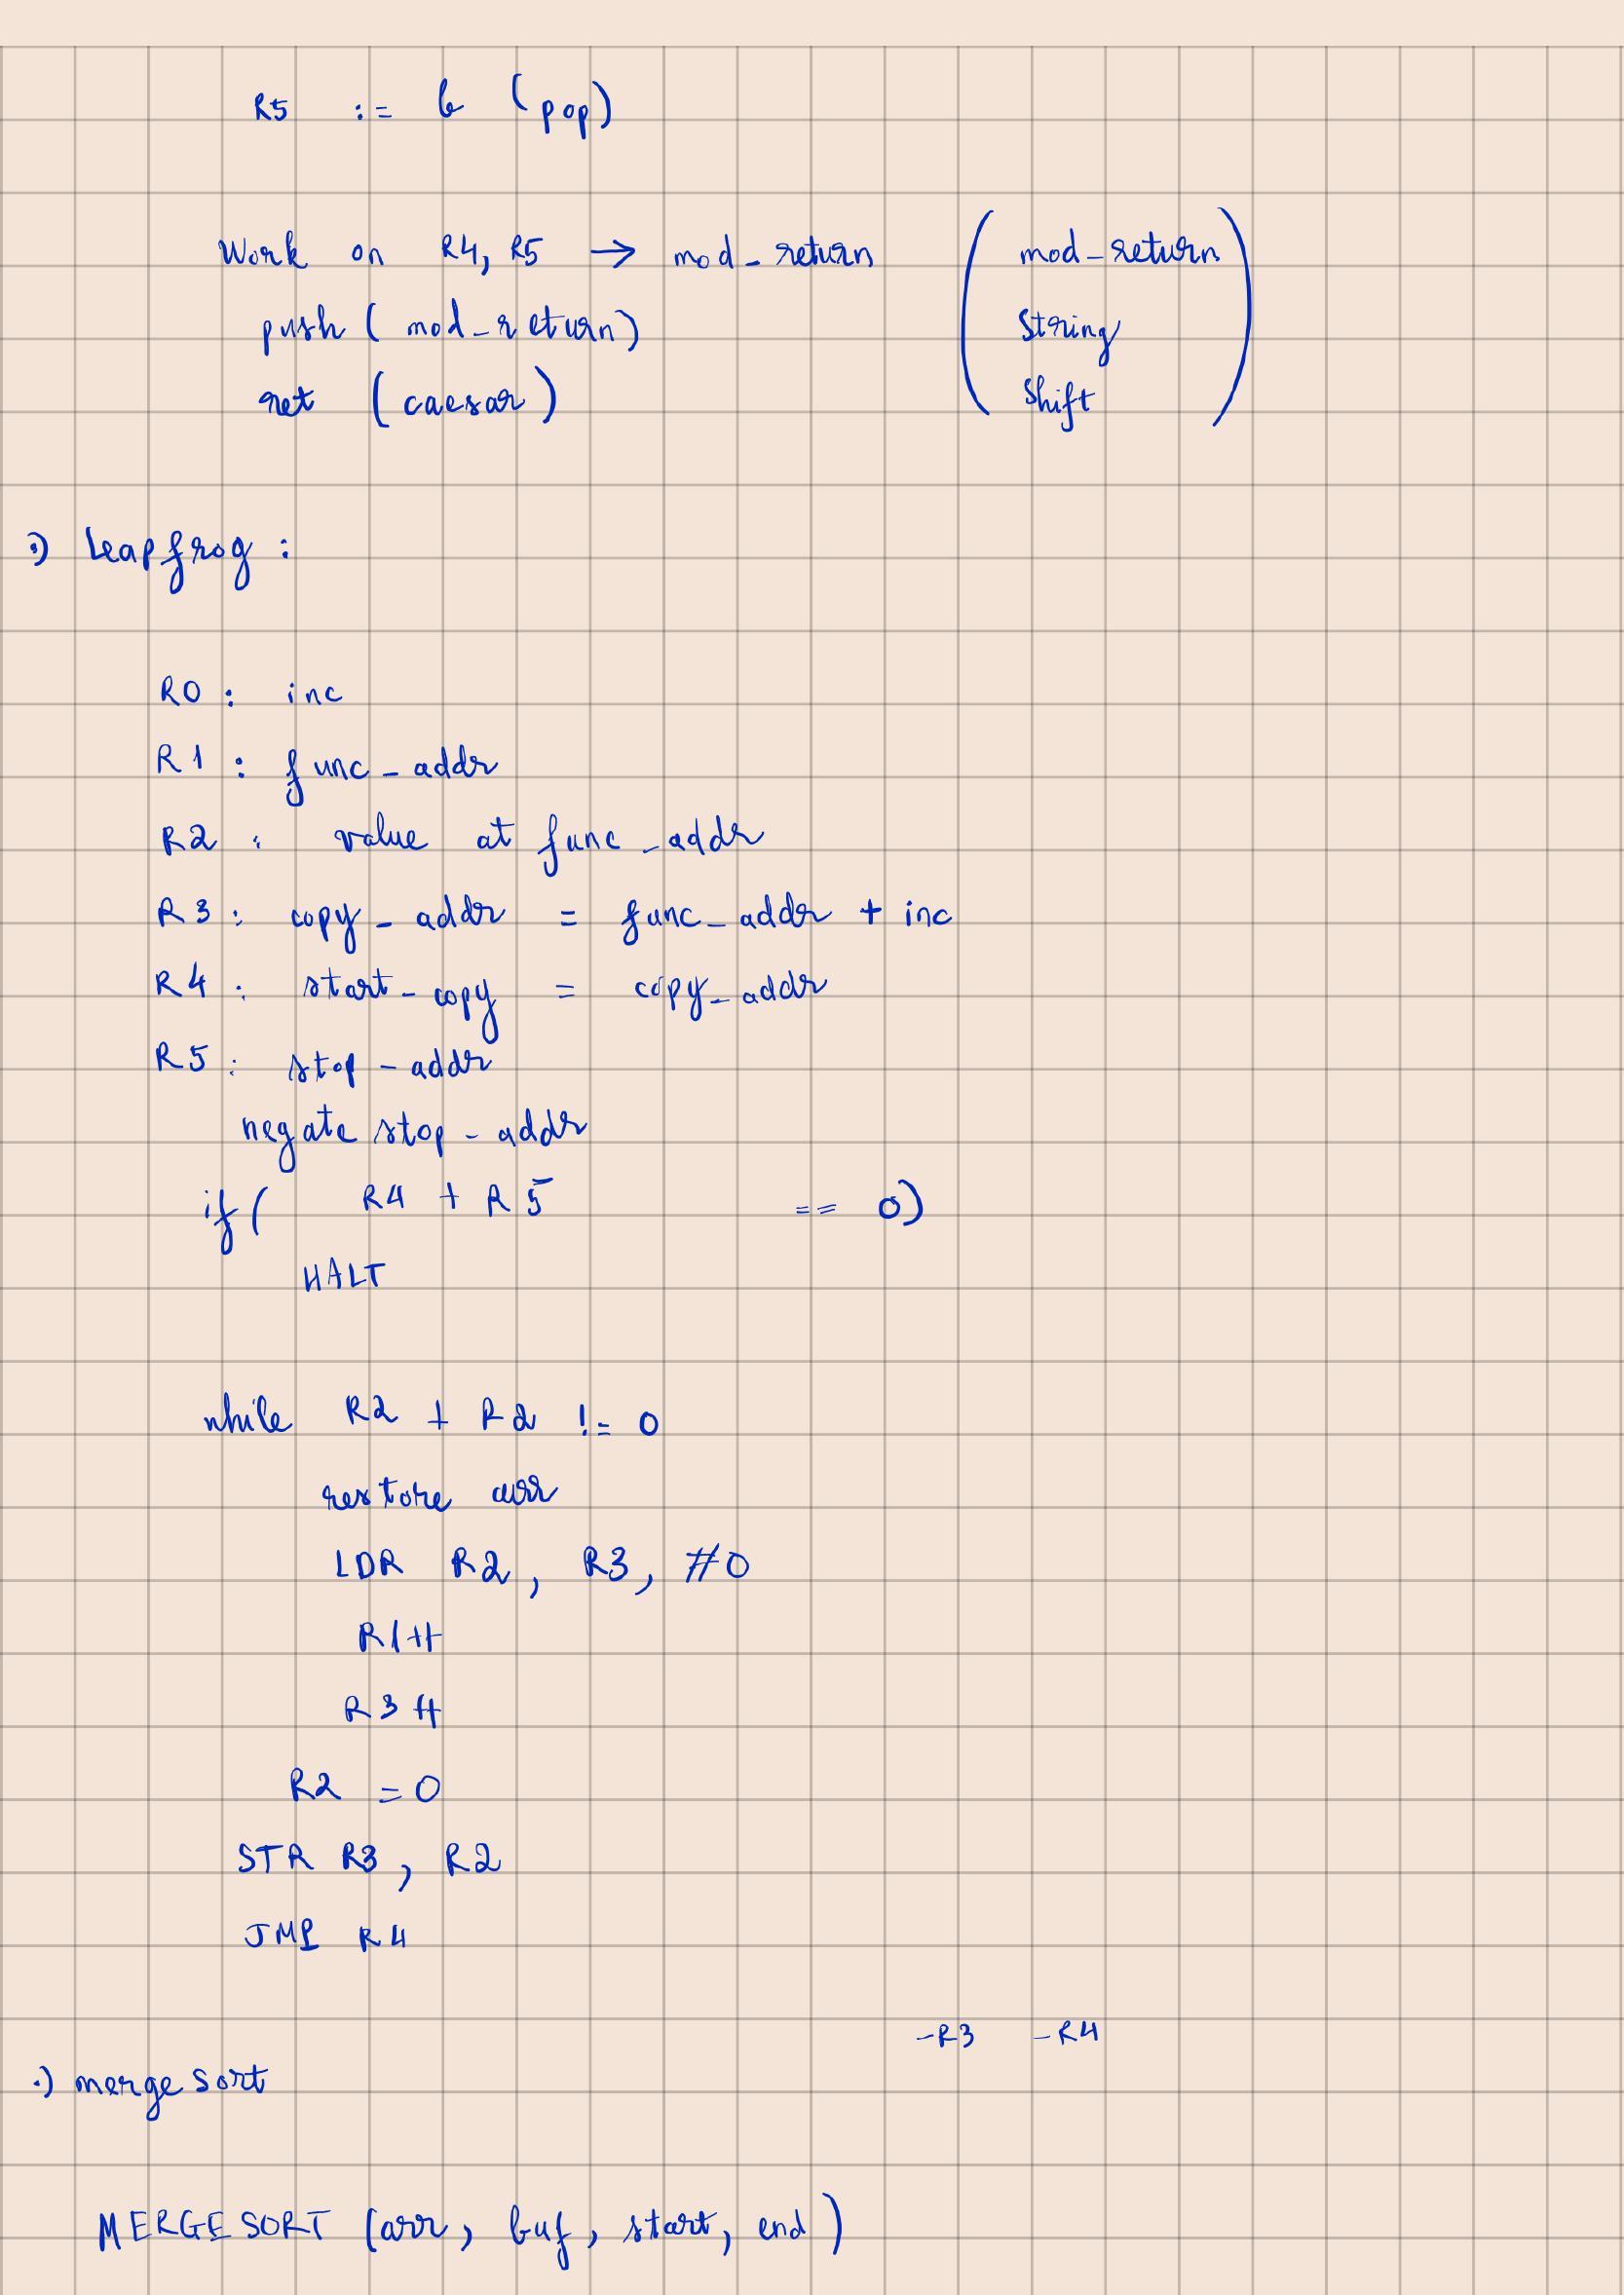 R5 := b (pop)
Work on R4, R5 → mod_return
push ( mod_return)
ret (caesar)
( mod_return
string
shift )
•) Leapfrog :
R0 : inc
R1 : func_addr
R2 : value at func_addr
R3 : copy_addr = func_addr + inc
R4 : start_copy = copy_addr
R5 : stop_addr
negate stop_addr
if ( R4 + R5 == 0)
HALT
while R2 + R2 != 0
restore
LDR R2, R3, #0
R1++
R3++
R2 = 0
STR R3, R2
JMP R4
-R3 -R4
•) merge sort
MERGESORT (arr, buf, start, end)